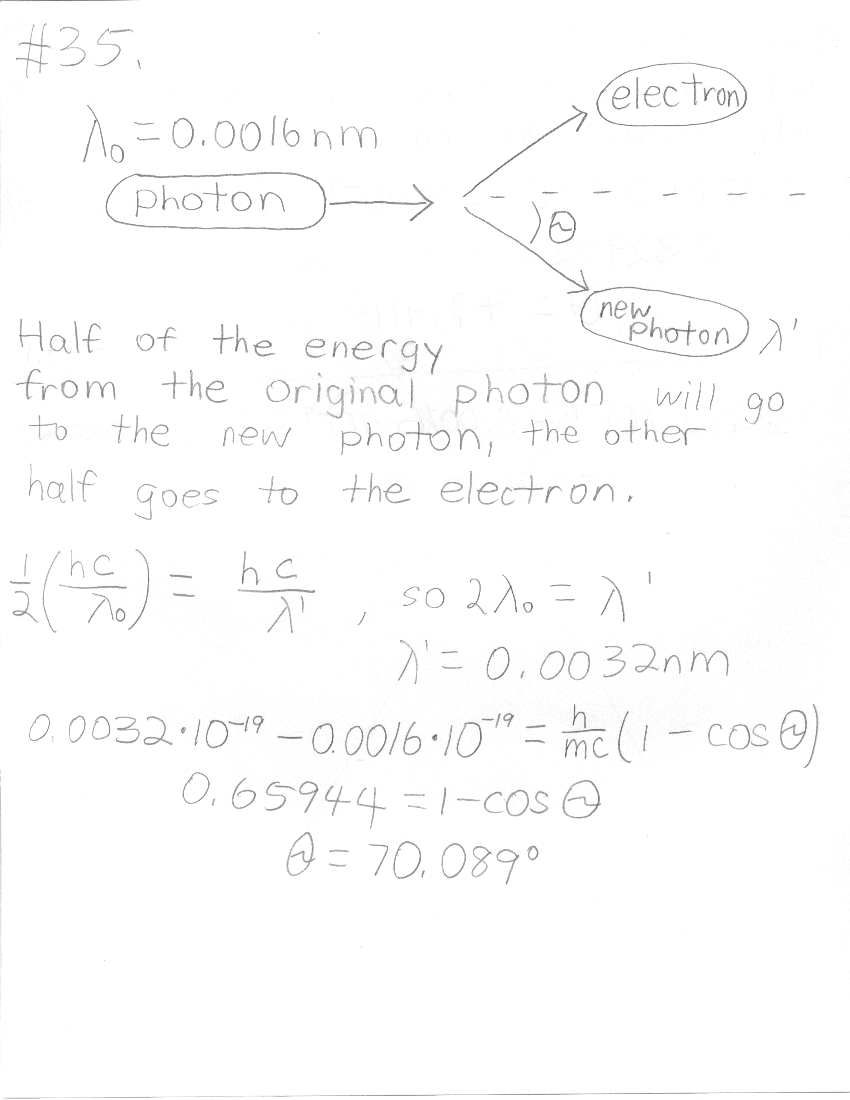 #35.
electron
λ₀ = 0.0016 nm
photon
Θ
new photon λ'
Half of the energy
from the original photon will go
to the new photon, the other
half goes to the electron.
1/2 (hc/λ₀) = hc/λ' , so 2λ₀ = λ'
λ' = 0.0032nm
0.0032·10⁻¹⁹ – 0.0016·10⁻¹⁹ = h/mc (1 – cos Θ)
0.65944 = 1–cos Θ
Θ = 70.089°